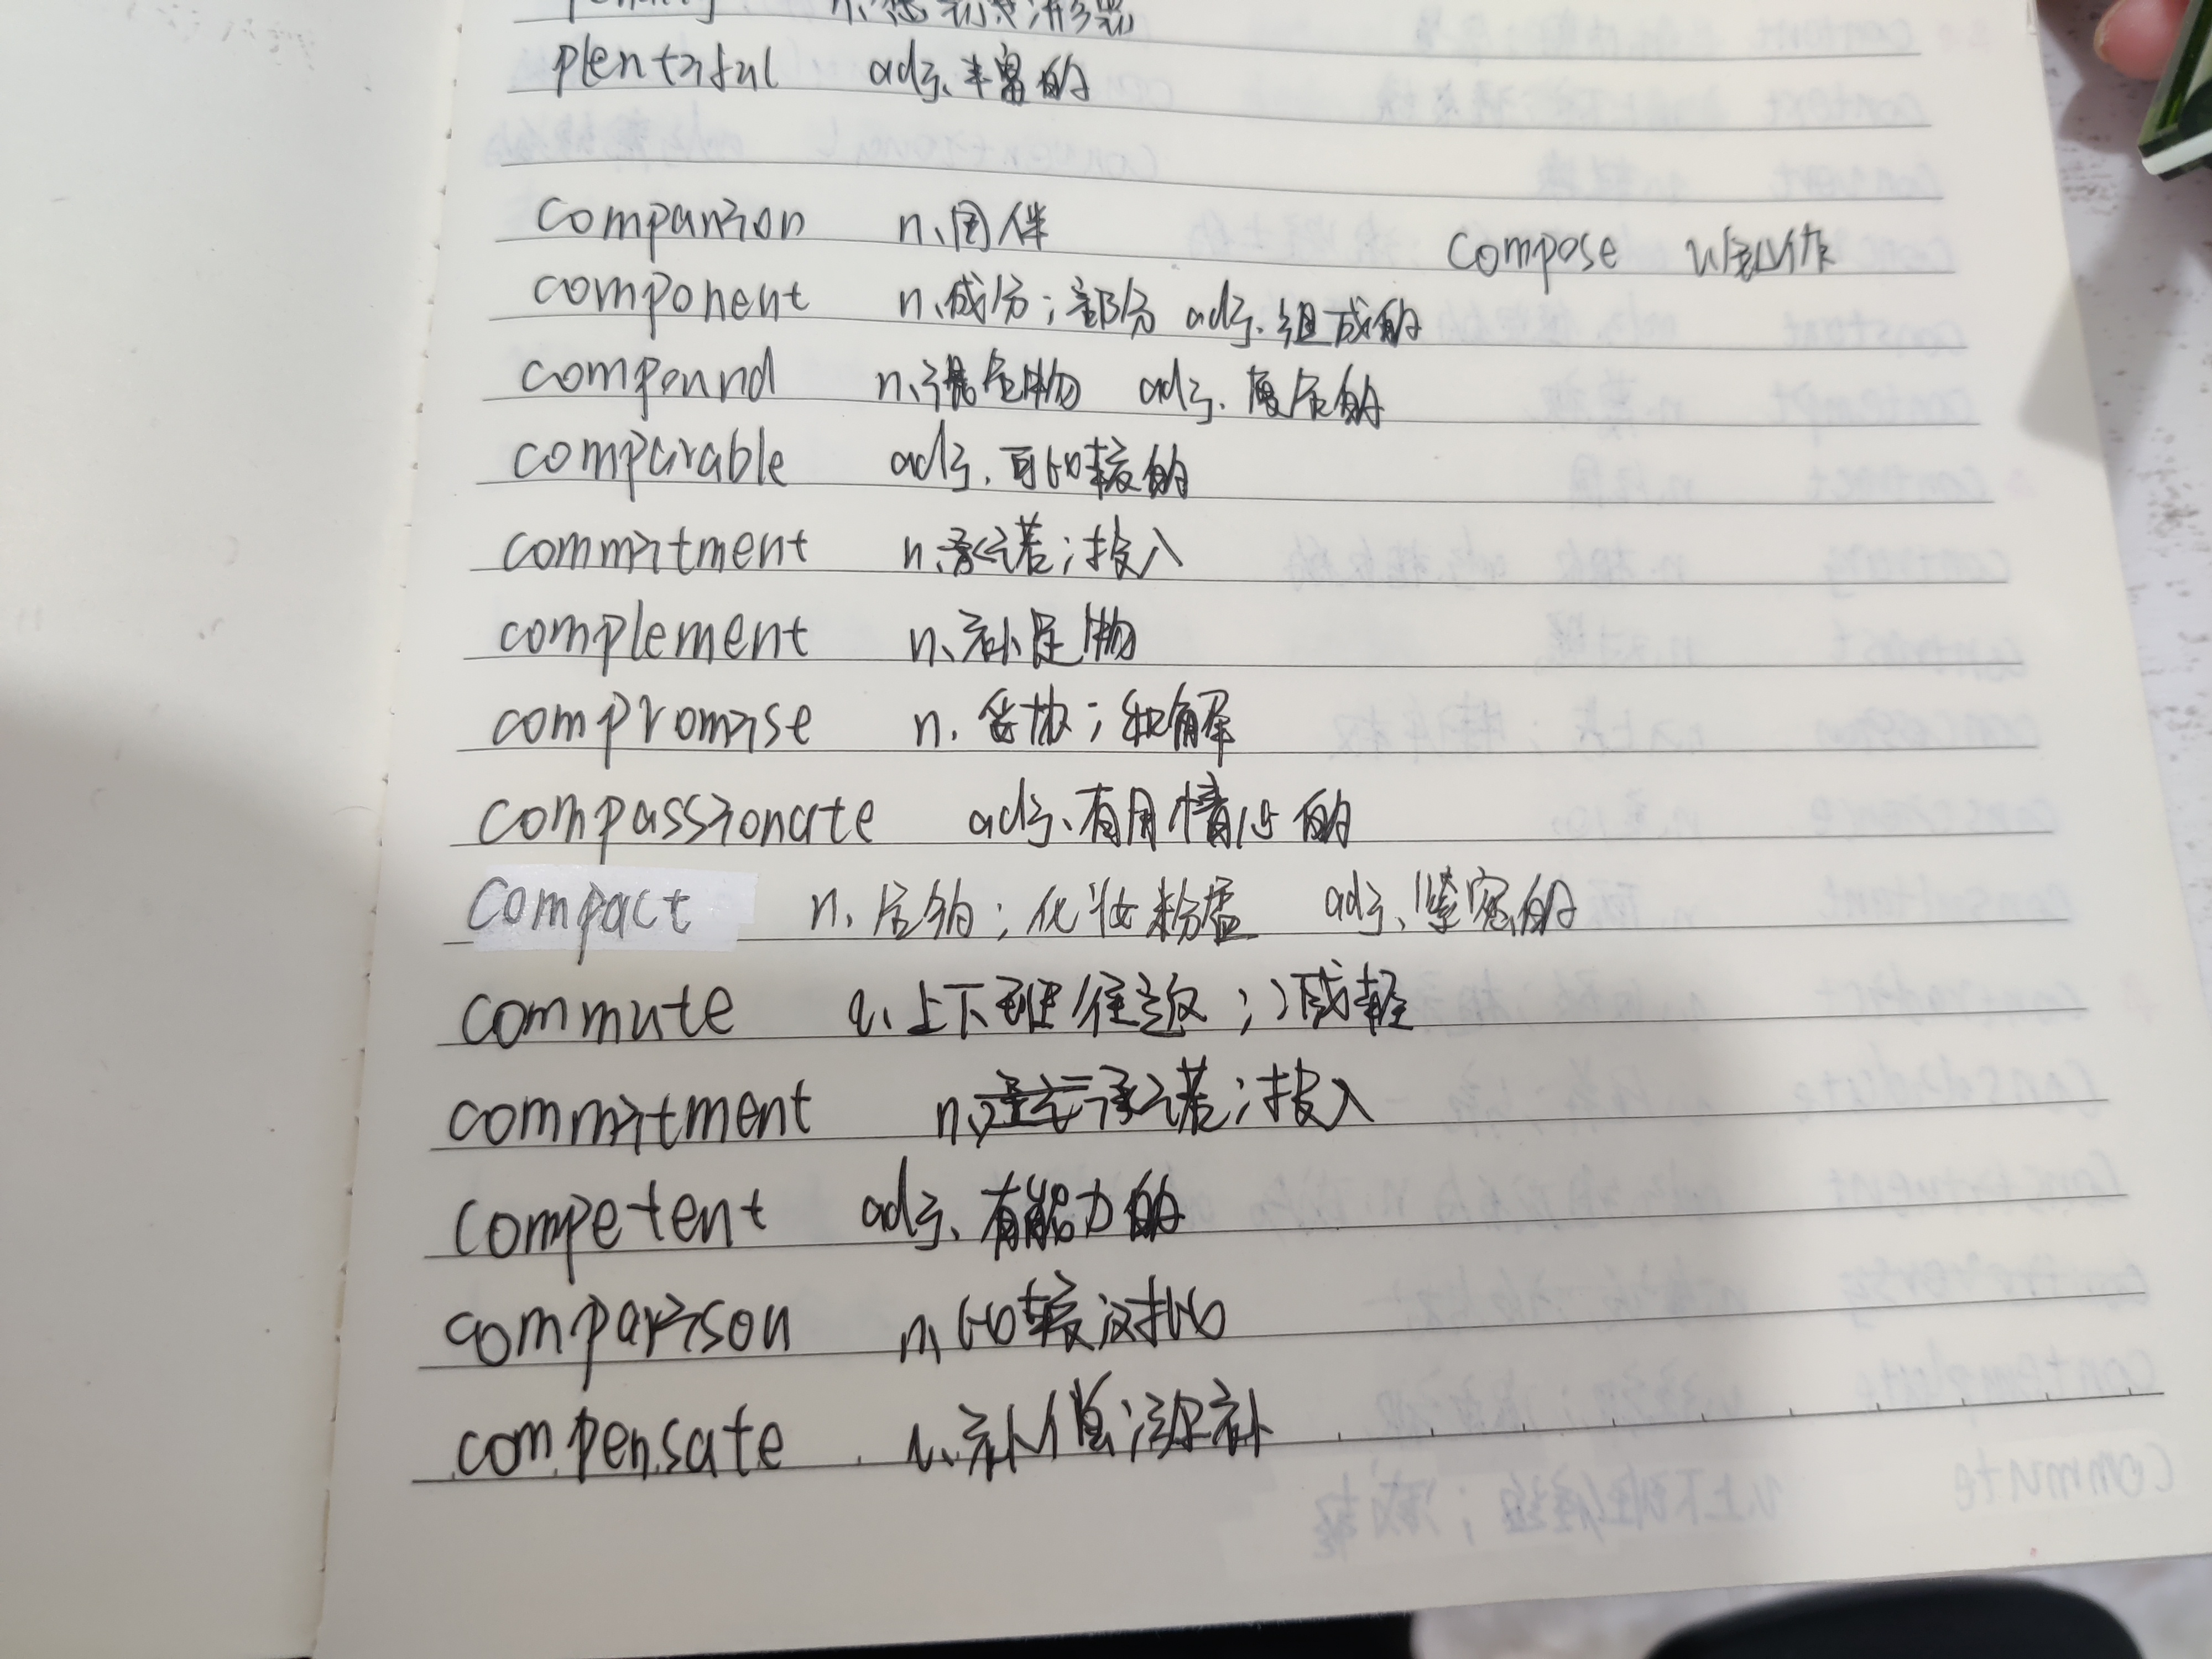 plentiful adj.丰富的
companion n.同伴 compose v.创作
component n.成分;部分 adj.组成的
compound n.混合物 adj.复合的
comparable adj.可比较的
commitment n.承诺;投入
complement n.补足物
compromise n.妥协;和解
compassionate adj.有同情心的
compact n.合约;化妆粉盒 adj.紧密的
commute v.上下班往返;减轻
commitment n.承诺;投入
competent adj.有能力的
comparison n.比较;对比
compensate v.补偿;弥补